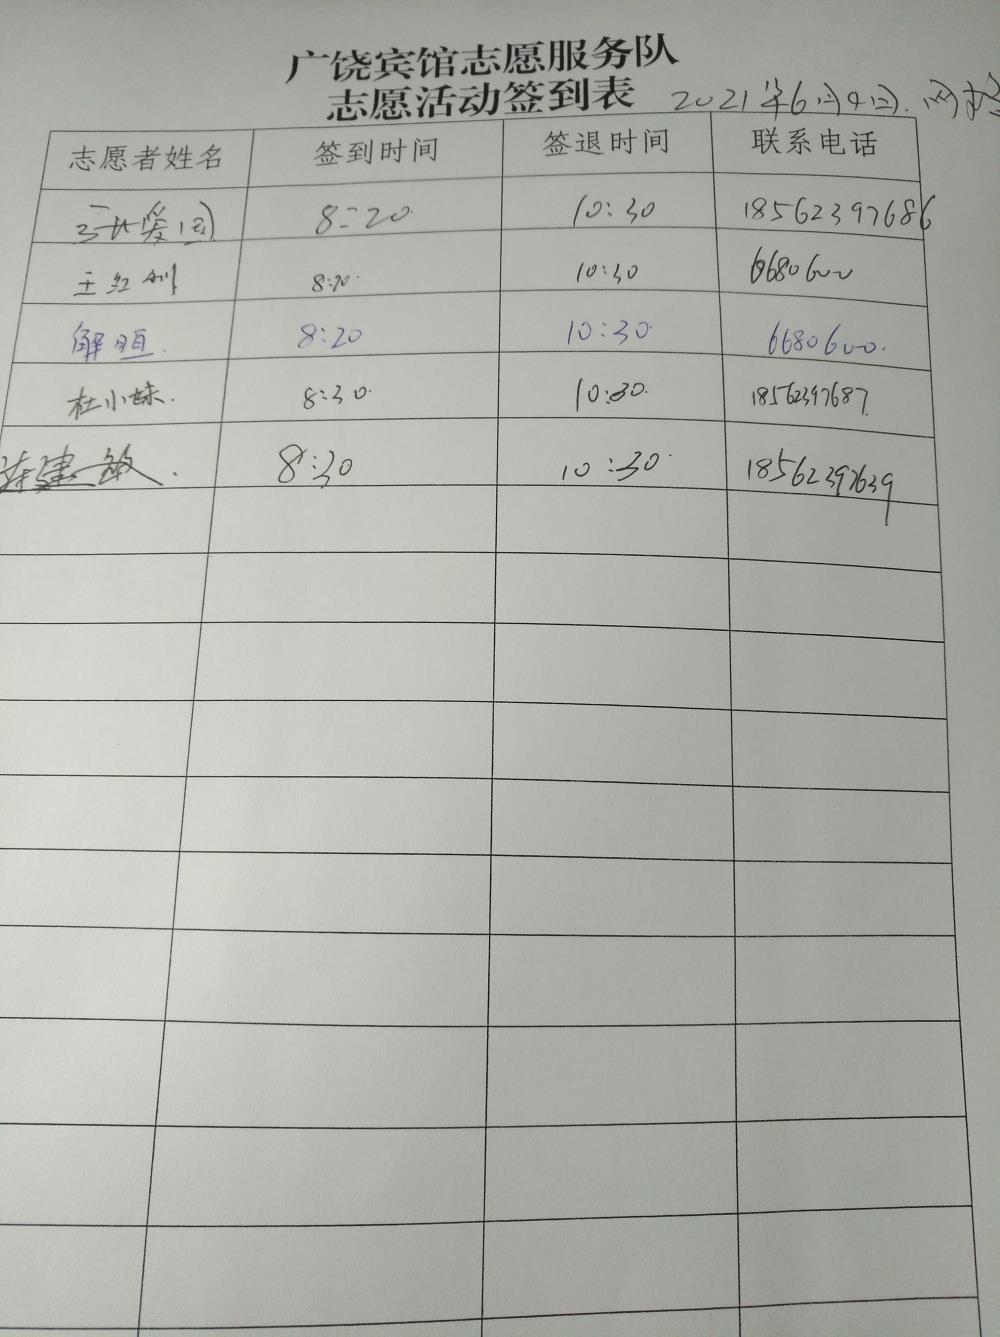 广饶宾馆志愿服务队
志愿活动签到表 2021年6月4日.网格
志愿者姓名 签到时间 签退时间 联系电话
8:20 10:30 18562397686
王红州 8:20 10:30 6680600
解 8:20 10:30 6680600
杜小妹 8:30 10:30 18562397687
建敏 8:30 10:30 18562397639